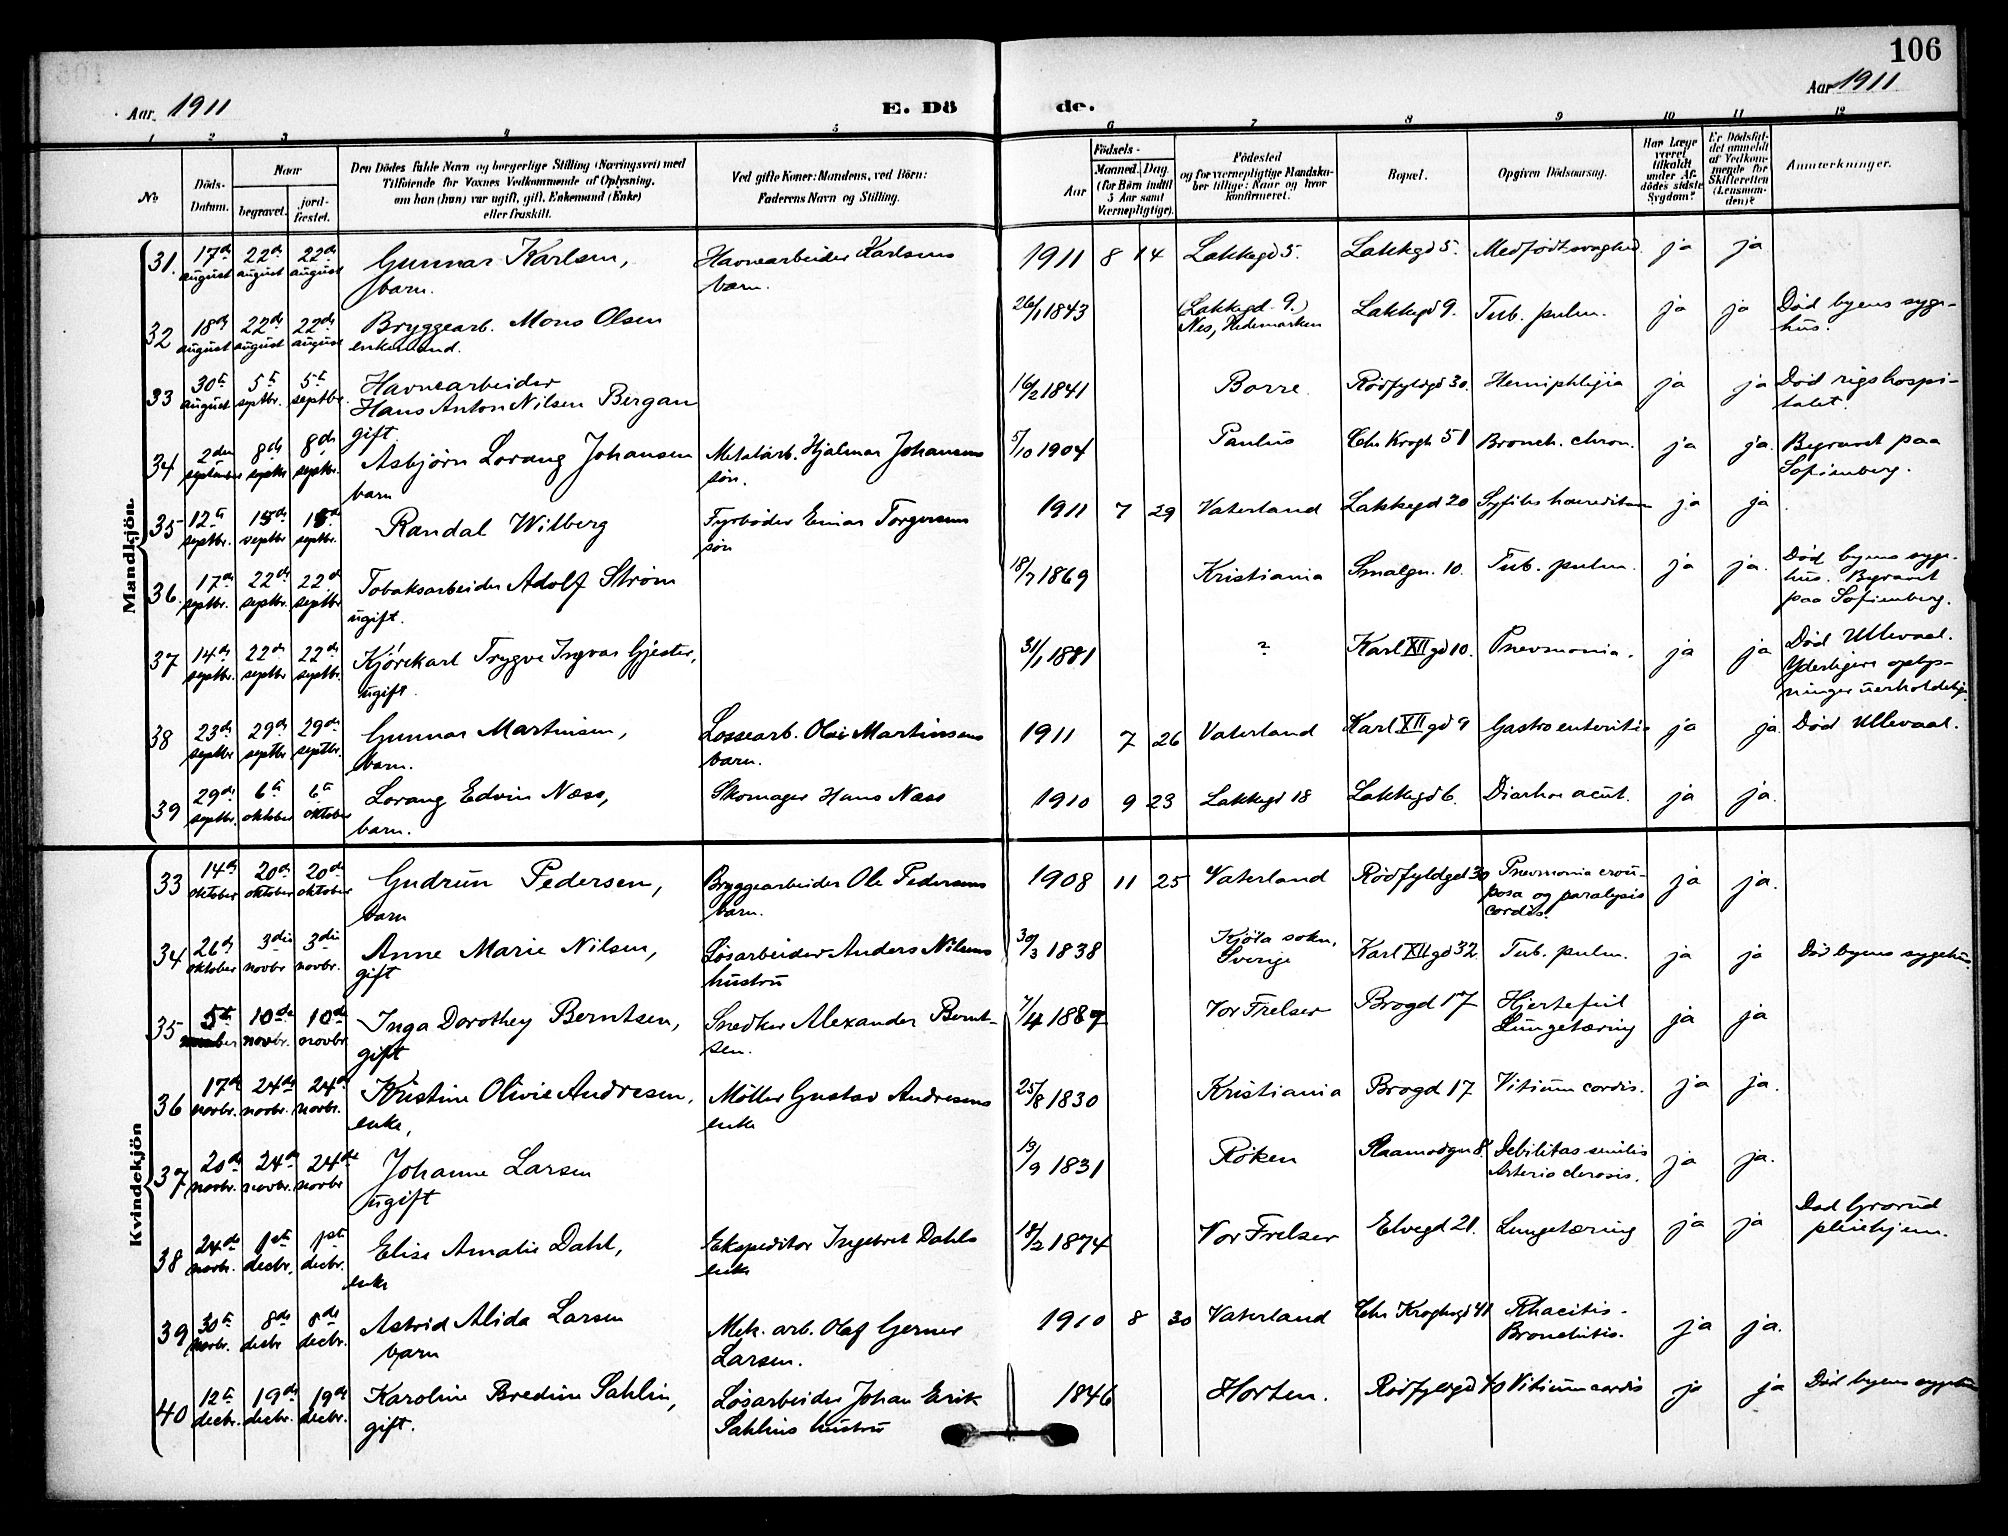 106
Aar 1911
E. Dö
de.
Aar 1911
1 2 3 4 5 6 7 8 9 10 11 12
No
Döds-Datum.
Naar
begravet.
jord-fæstet.
Den Dödes fulde Navn og borgerlige Stilling (Næringsvei) med
Tilföiende for Voxnes Vedkommende af Oplysning,
om han (hun) var ugift, gift, Enkemand (Enke)
eller fraskilt.
Ved gifte Koner: Mandens, ved Börn:
Faderens Navn og Stilling.
Födsels-
Aar
Maaned. Dag.
(for Börn indtil
5 Aar samt
Værnepligtige).
Födested
og for værnepligtige Mandska-
ber tillige: Naar og hvor
konfirmeret.
Bopæl.
Opgiven Dödsaarsag.
Har Læge
været
tilkaldt
under Af-
dödes sidste
Sygdom?
Er Dödsfal-
det anmeldt
af Vedkom-
mende for
Skifteretten
(Lensman-
den)?
Anmærkninger.
Mandkjön.
31. 17de august 22de august 22de august Gunnar Karlsen, barn. Havnearbeider Karlsens barn. 1911 8 14 Lakkegd 5. Lakkegd 5. Medfødt svaghed. ja ja
32 18de august 22de august 22de august Bryggearb. Mons Olsen enkemand. 26/1 1843 (Lakkegd. 9.) Nes, Hedemarken Lakkegd 9. Tub. pulm. ja ja Død byens syge-
hus.
33 30te august 5te septbr. 5te septbr. Havnearbeider
Hans Anton Nilsen Bergan
gift 16/2 1841 Borre. Rødfyldgd 30. Hemiphlegia ja ja Død rigshospi-
talet.
34 2den september 8de septbr. 8de septbr. Asbjørn Lorang Johansen barn Metalarb. Hjalmar Johansens søn. 5/10 1904 Paulus Chr Krogh 51 Bronch. chron. ja ja. Begravet paa
Sofienberg.
35 12te septbr. 15de septbr. 15de septbr. Randal Wilberg Fyrbøder Einar Torgersens søn 1911 7 29 Vaterland Lakkegd 20 Syfilis hereditaria ja ja
36. 17de septbr. 22de septbr. 22de septbr. Tobaksarbeider Adolf Strøm ugift. 18/7 1869 Kristiania Smalgn. 10. Tub. pulm. ja ja. Død byens syge-
hus. Begravet
paa Sofienberg.
37 14de septbr. 22de septbr. 22de septbr. Kjørekarl Trygve Ingvar Gjester, ugift. 31/1 1881 ? Karl XII gd 10. Pnevmonia. ja ja Død Ullevaal.
Yderligere oplys-
ninger uerholdelige
38 23de septbr. 29de septbr. 29de septbr. Gunnar Martinsen, barn. Lossearb. Olai Martinsens barn. 1911 7 26 Vaterland Karl XII gd 9 Gastroenteritis ja ja. Død Ullevaal.
39 29de septbr. 6te oktober 6te oktober Lorang Edvin Næss, barn. Skomager Hans Næss 1910 9 23 Lakkegd 18 Lakkegd 6. Diarhoe acut. ja ja.
Kvindekjön
33 14de oktober 20de oktober 20de oktober Gudrun Pedersen, barn Bryggearbeider Ole Pedersens barn. 1908 11 25 Vaterland Rødfyldgd 30 Pnevmonia crou-
posa og paralysis
cordis. ja ja.
34 26de oktober 3die novbr 3die novbr. Anne Marie Nilsen, gift Løsarbeider Anders Nilsens hustru 30/3 1838 Kjøla sokn, Sverige Karl XII gd 32. Tub. pulm. ja ja Død byens sygehus.
35 5te 10de novbr. 10de novbr. Inga Dorothey Berntsen, gift Snedker Alexander Bernt-
sen. 7/4 1889 Vor Frelser Brogd 17 Hjertefeil
Lungetæring ja ja
36 17de novbr. 24de novbr. 24de novbr. Kristine Olivie Andresen, enke, Møller Gustav Andresens enke 25/8 1830 Kristiania Brogd 17 Vitium cordis. ja ja.
37 20de novbr. 24de novbr. 24de novbr Johanne Larsen ugift 13/9 1831 Røken Plaamodgn 8. Debilitas senilis
Arterio clerosis. ja ja.
38 24de novbr. 1ste decbr. 1ste decbr. Elise Amalie Dahl, enke Ekspeditør Ingebret Dahls enke 18/2 1874 Vor Frelser Elvegd 21. Lungetæring ja ja Død Grorud
pleiehjem.
39 30te novbr. 8de decbr 8de decbr. Astrid Alida Larsen barn Mek. arb. Olaf Gerner Larsen. 1910 8 30 Vaterland Chr Kroghsgd 41 Rhacitis-
Bronchitis. ja ja.
40 12te decbr. 19de decbr. 19de decbr. Karoline Bredine Sahlin, gift. Løsarbeider Johan Erik Sahlins hustru 1846 Horten. Rødfyldgd 40 Vitium cordis ja ja Død byens sygehus